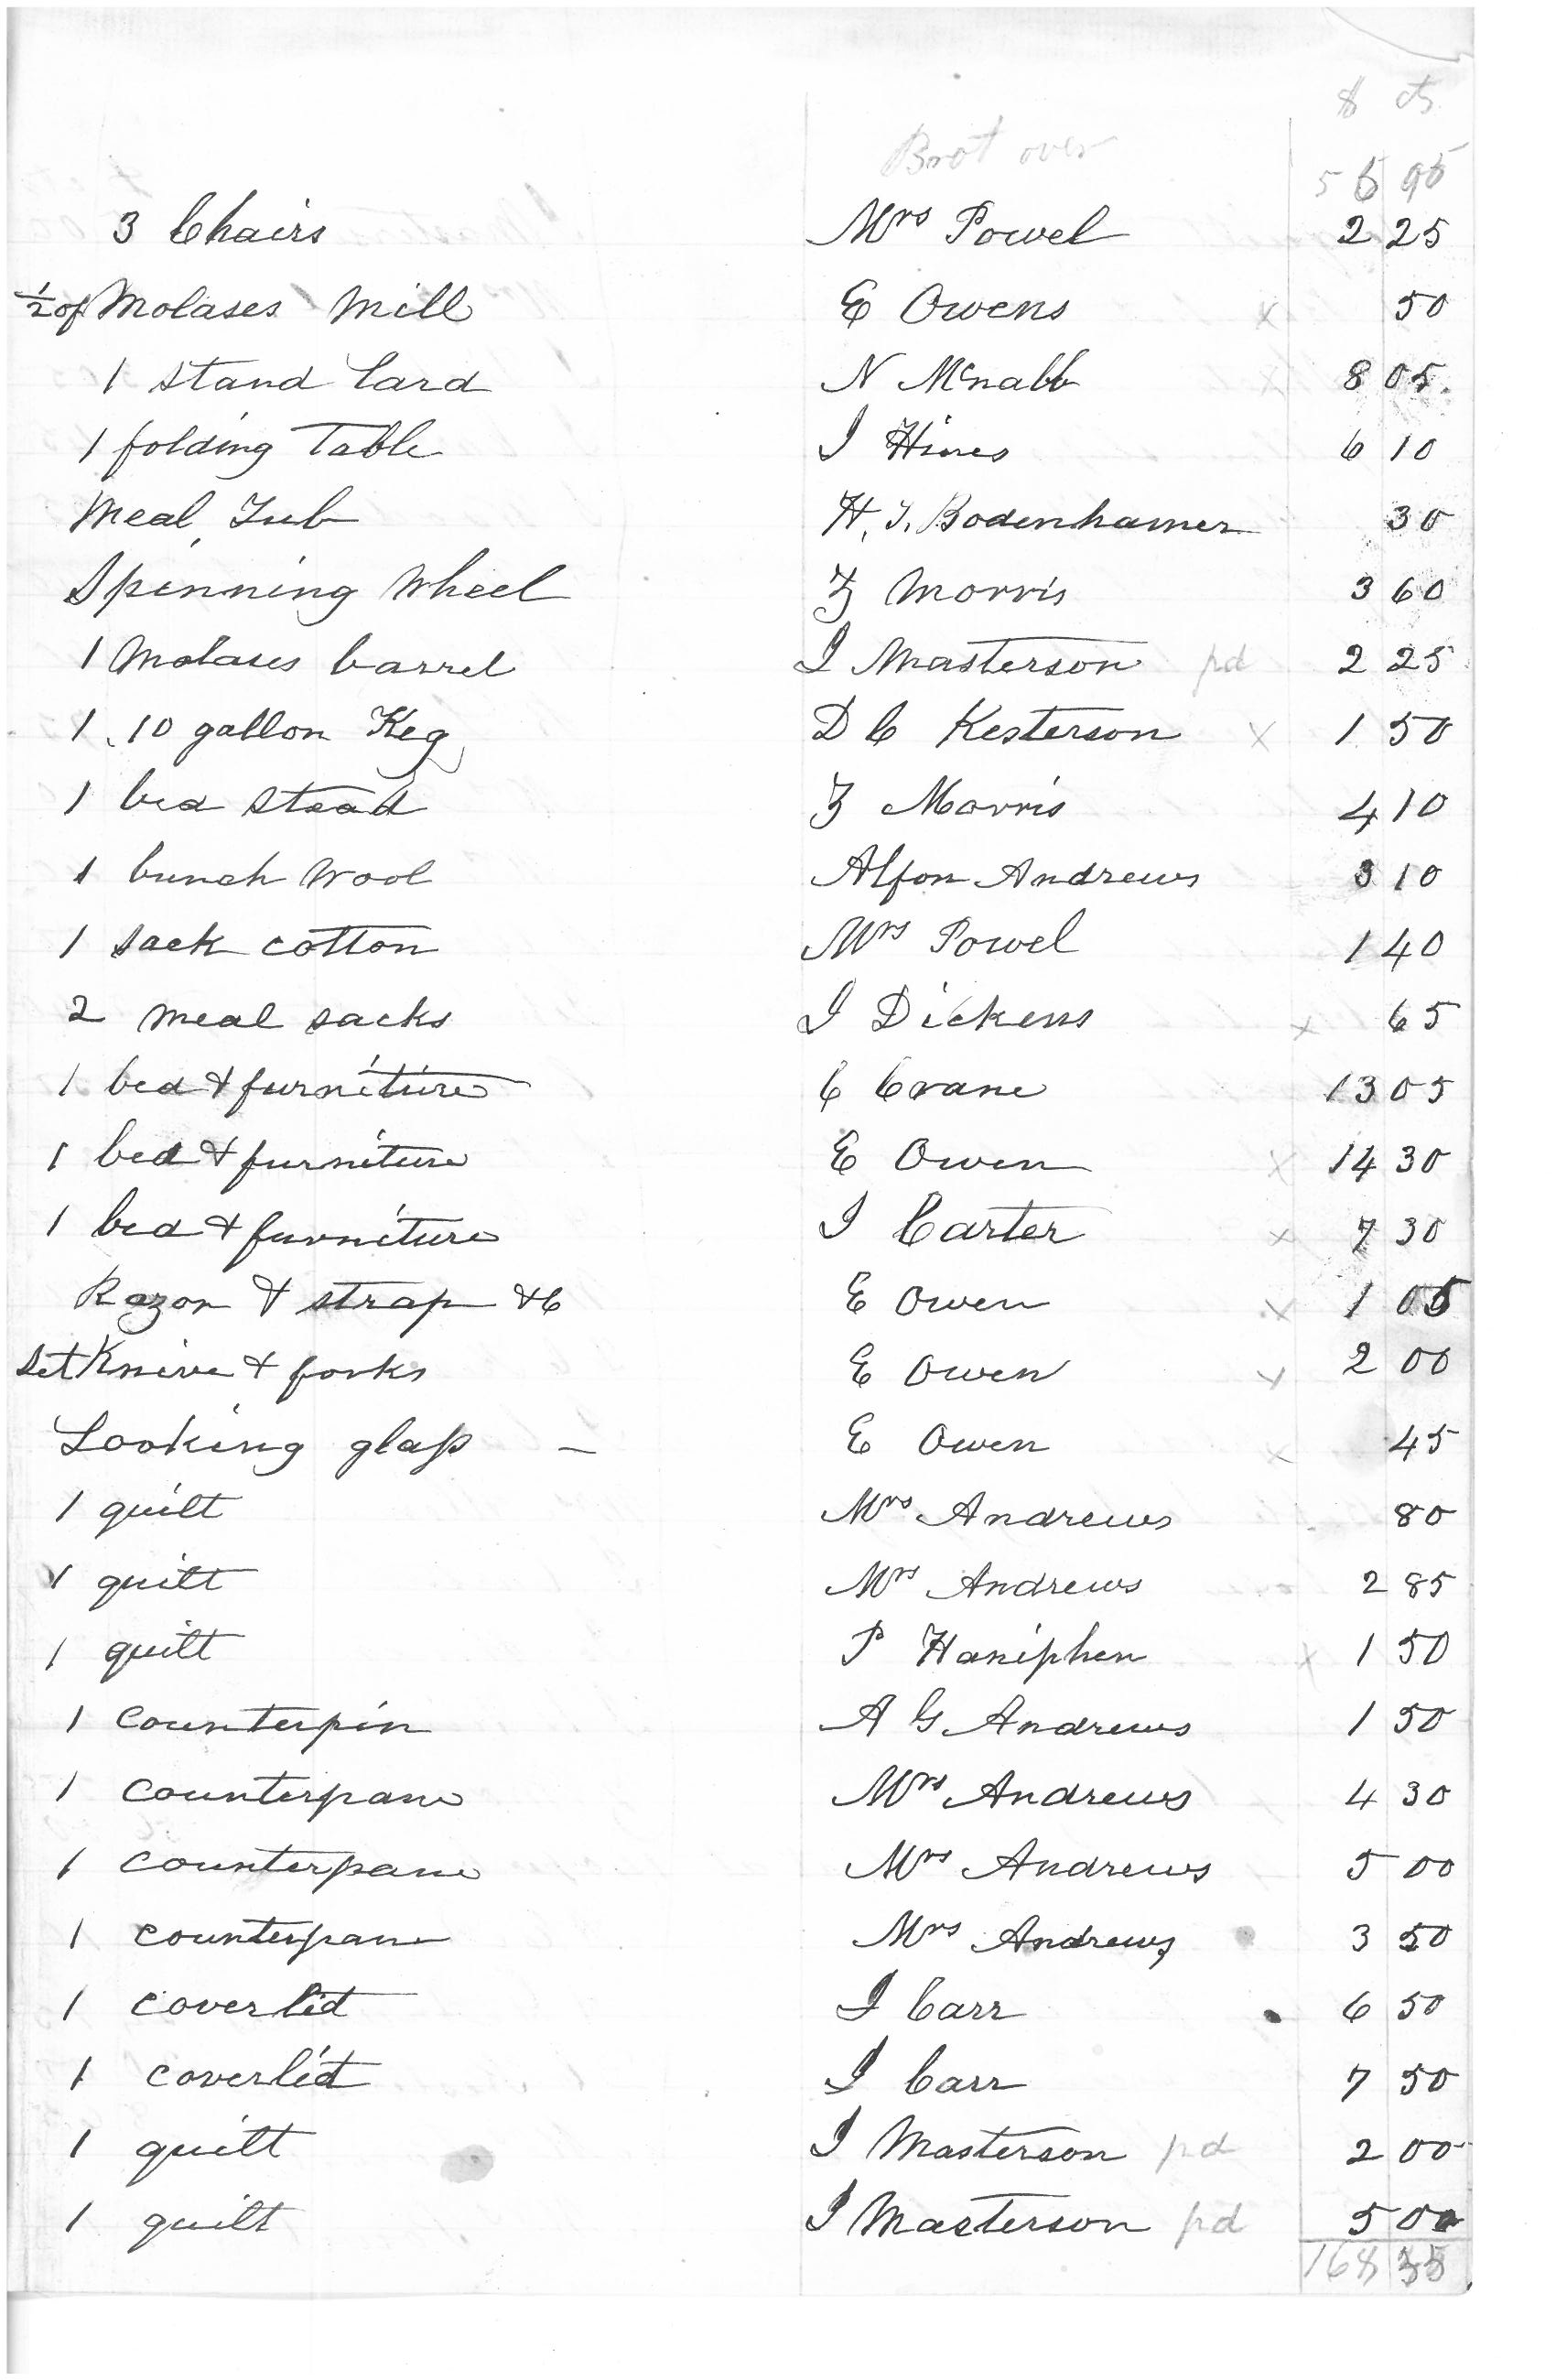 $ cts
Brot over 56 95
3 Chairs Mrs Powel 2 25
1/2 of Molases Mill E Owens x 50
1 stand lard N McNabb x 8 05
1 folding Table J Hines 6 10
Meal Tub H. T. Bodenhamer 30
Spinning Wheel Z Morris 3 60
1 Molases barrel J Masterson pd 2 25
1, 10 gallon Keg D C Kesterson x 1 50
1 bed stead Z Morris 4 10
1 bunch wool Alfon Andrews 3 10
1 sack cotton Mrs Powel 1 40
2 meal sacks J Dickens x 65
1 bed & furniture C Crane 13 05
1 bed & furniture E Owen x 14 30
1 bed & furniture J Carter x 7 30
Razor & strap &c E Owen x 1 05
Set Knive & forks E Owen x 2 00
Looking glass — E Owen x 45
1 quilt Mrs Andrews 80
1 quilt Mrs Andrews 2 85
1 quilt P Haniphen x 1 50
1 counterpin A G Andrews 1 50
1 counterpane Mrs Andrews 4 30
1 counterpane Mrs Andrews 5 00
1 counterpane Mrs Andrews 3 50
1 coverlid J Carr 6 50
1 coverlid J Carr 7 50
1 quilt J Masterson pd 2 00
1 quilt J Masterson pd 5 00
168